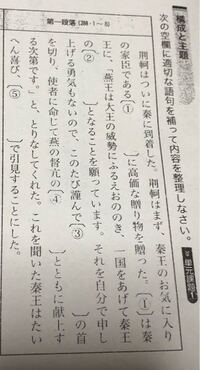 構成と主題
次の空欄に適切な語句を補って内容を整理しなさい。
単元課題①
第一段落(288・1〜8)
荆軻はついに秦に到着した。荆軻はまず、秦王のお気に入り
の家臣である〔① 〕に高価な贈り物を贈った。〔①〕は秦
王に、「燕王は大王の威勢にふるえおののき、一国をあげて秦王
の〔② 〕となることを願っています。それを自分で申し
上げる勇気もないので、このたび謹んで〔③ 〕の首
を切り、使者に命じて燕の督亢の〔④ 〕とともに献上す
る次第です。」と、とりなしてくれた。これを聞いた秦王はたい
へん喜び、〔⑤ 〕で引見することにした。